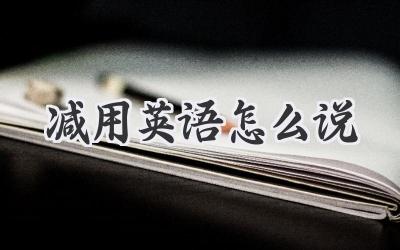 减用英语怎么说